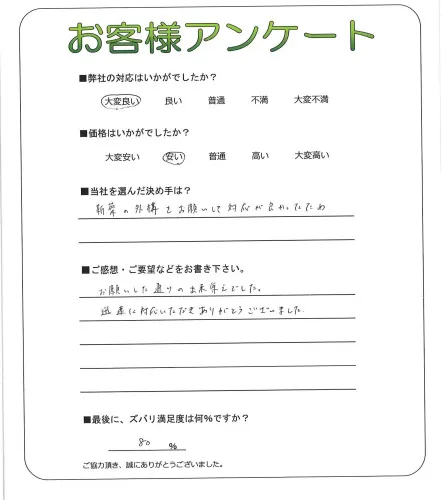 お客様アンケート
■弊社の対応はいかがでしたか？
大変良い 良い 普通 不満 大変不満
■価格はいかがでしたか？
大変安い 安い 普通 高い 大変高い
■当社を選んだ決め手は？
新築の外構をお願いして対応が良かったため
■ご感想・ご要望などをお書き下さい。
お願いした通りの出来栄えでした。
迅速に対応いただきありがとうございました。
■最後に、ズバリ満足度は何％ですか？
80 %
ご協力頂き、誠にありがとうございました。